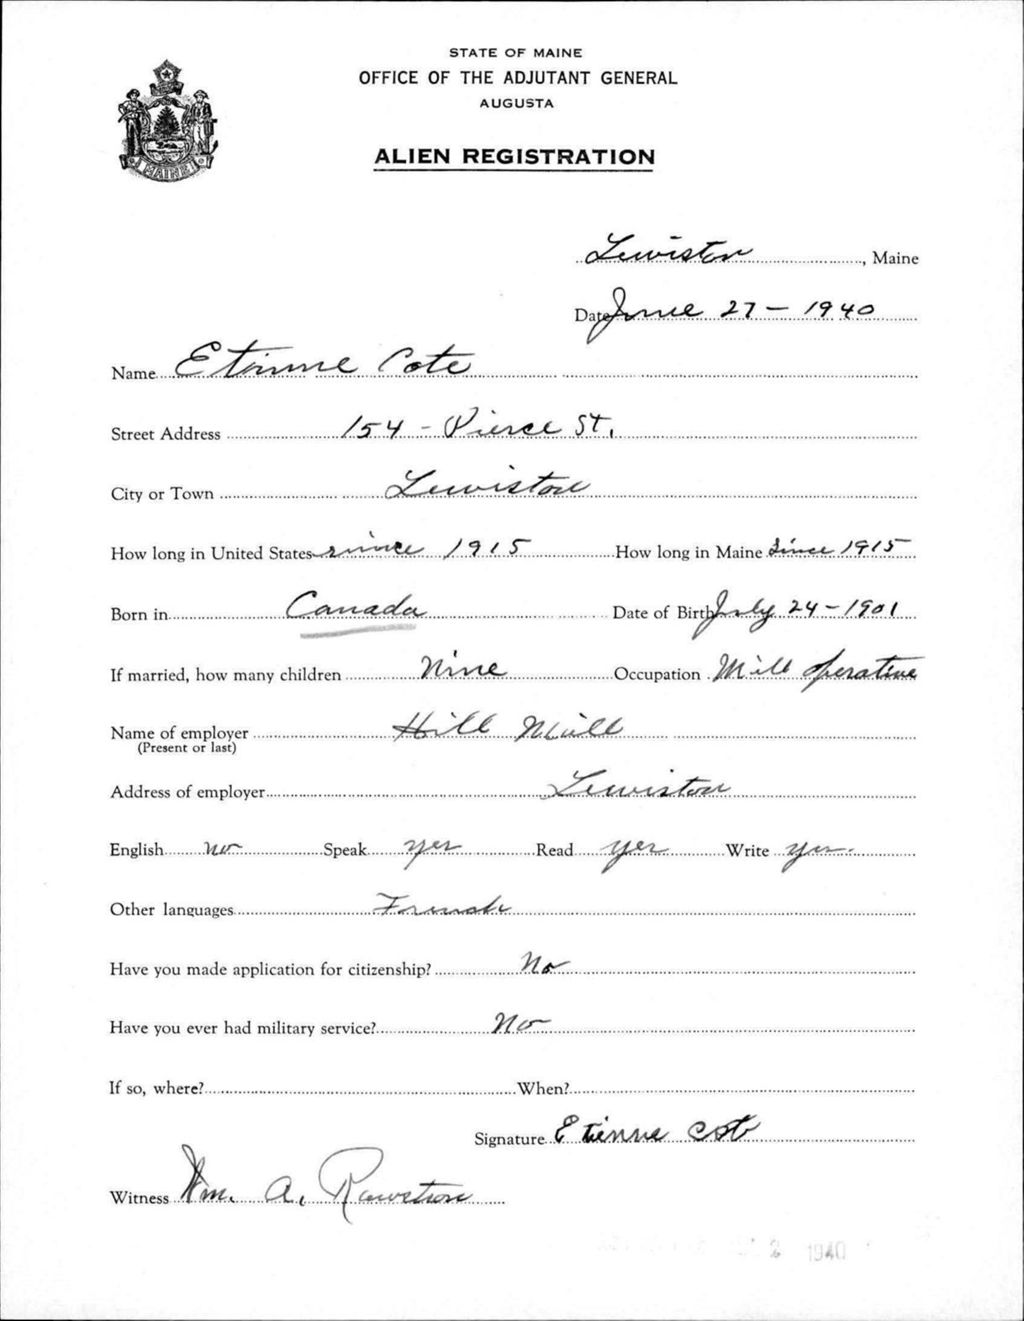 STATE OF MAINE
OFFICE OF THE ADJUTANT GENERAL
AUGUSTA
ALIEN REGISTRATION
MAINE
Lewiston, Maine
Date June 27 - 1940
Name Etienne Cote
Street Address 154 - Pierce St.
City or Town Lewiston
How long in United States since 1915 How long in Maine Since 1915
Born in Canada Date of Birth July 24 - 1901
If married, how many children Nine Occupation Mill operative
Name of employer Hill Mill
(Present or last)
Address of employer Lewiston
English no Speak yes Read yes Write yes.
Other languages French
Have you made application for citizenship? No
Have you ever had military service? No
If so, where? When?
Signature Etienne Cote
Witness Wm. A. Rowston
2 1940